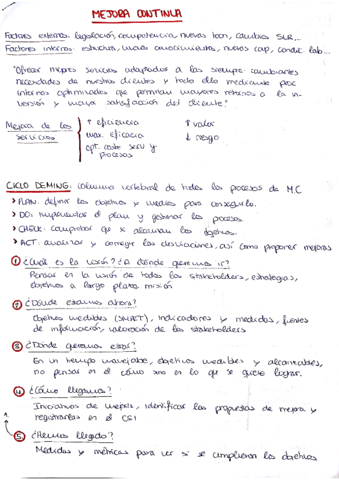 MEJORA CONTINUA
Factores externos: legislación, competencia, nuevas tecn, cambios SLR,..
Factores internos: estructura, nuevos conocimientos, nuevas cap, condic. lab...
"Ofrecer mejores servicios adaptados a las siempre cambiantes
necesidades de nuestros clientes y todo ello mediante proc
internos optimizados que permitan mayores retornos a la in-
versión y mayor satisfacción del cliente"
Mejora de los servicios
↑ eficiencia
max. eficacia
opt. coste serv y procesos
↑ valor
↓ riesgo
CICLO DEMING: columna vertebral de todos los procesos de M.C
> PLAN: definir los objetivos y medios para conseguirlo.
> DO: implementar el plan y gestionar los procesos.
> CHECK: comprobar que se alcanzan los objetivos.
> ACT: analizar y corregir las desviaciones, así como proponer mejoras
1 ¿Cuál es la visión? ¿A dónde queremos ir?
Pensar en la visión de todos los stakeholders, estrategias,
objetivos a largo plazo misión
2 ¿Dónde estamos ahora?
Objetivos medibles (SMART), indicadores y medidas, fuentes
de información, valoración de los stakeholders
3 ¿Dónde queremos estar?
En un tiempo manejable, objetivos medibles y alcanzables,
no pensar en el cómo sino en lo que se quiere lograr.
4 ¿Cómo llegamos?
Iniciativas de mejora, identificar las propuestas de mejora y
registrarlas en el CSI
5 ¿Hemos llegado?
Medidas y métricas para ver si se cumplieron los objetivos